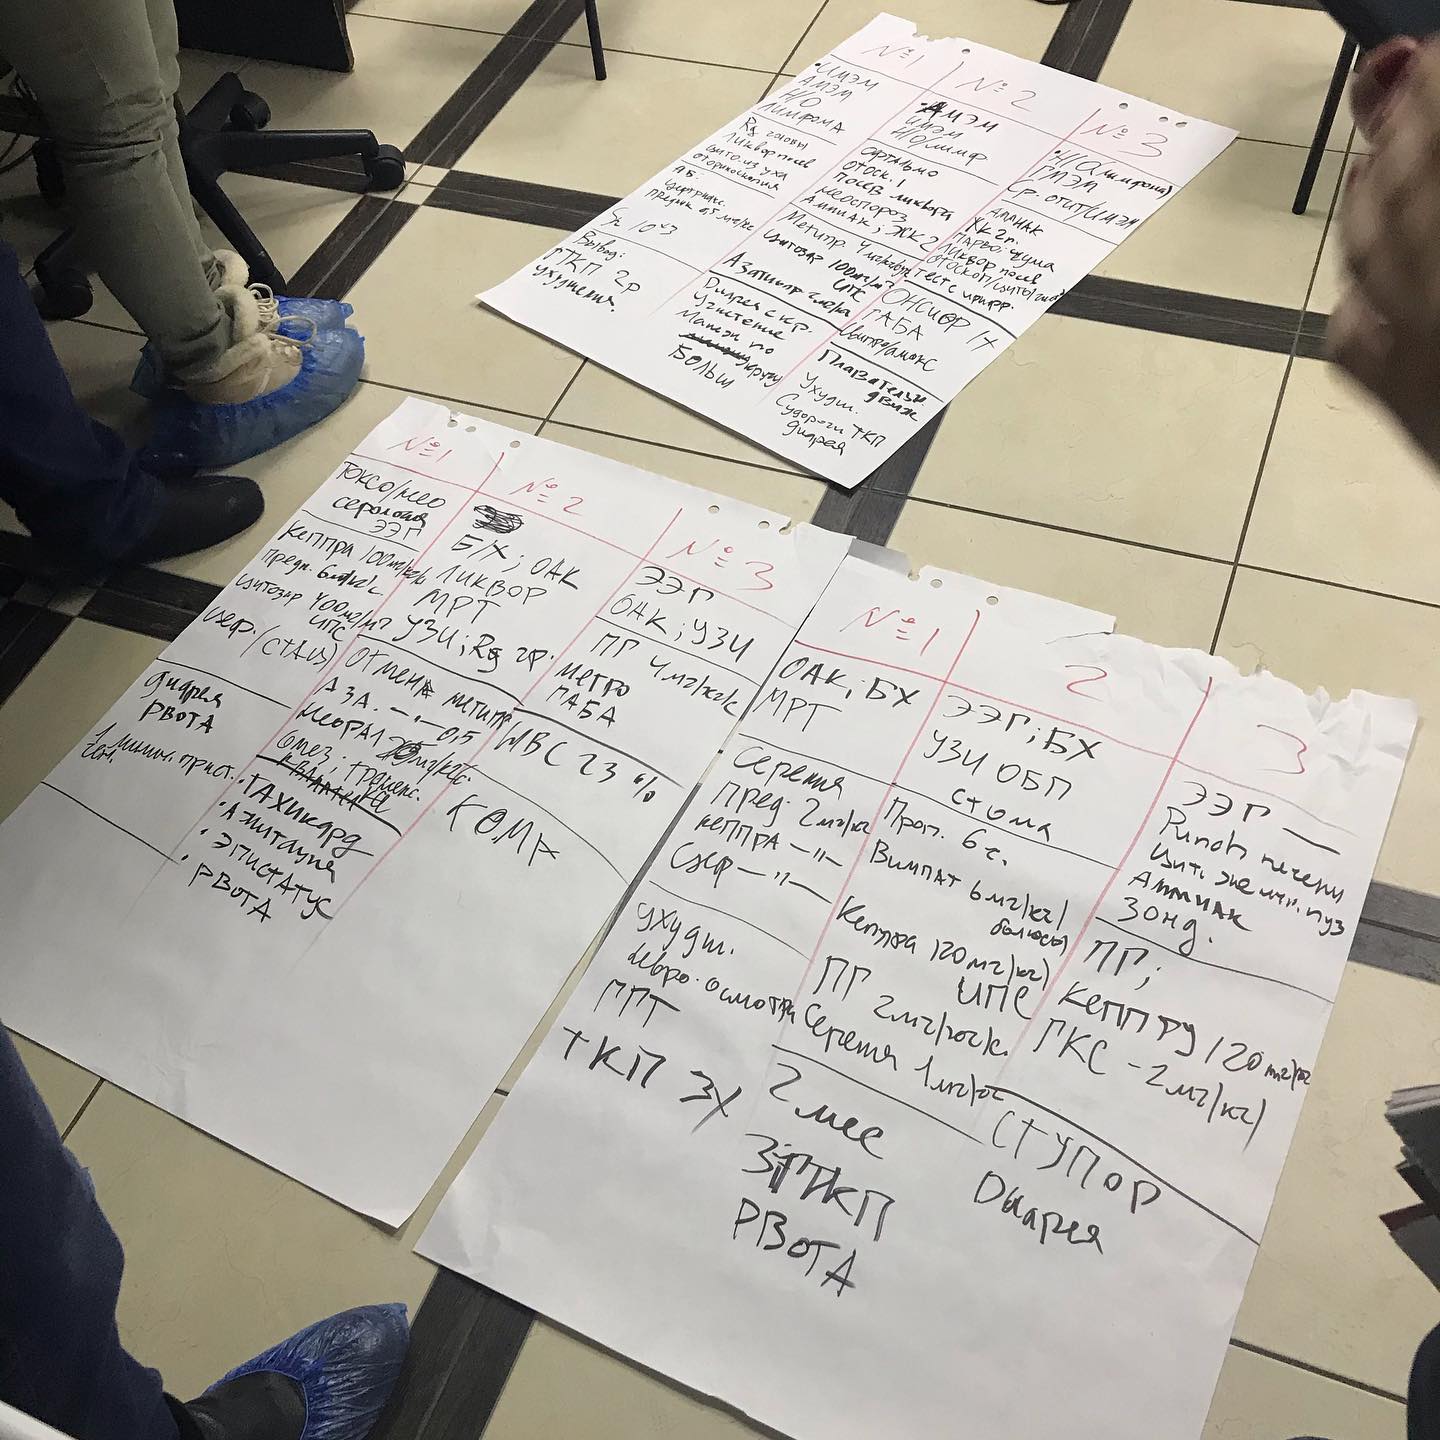 №1
ИМЭМ
АМЭМ
Н/О
ЛИМФОМА
Rg головы
Ликвор посев
цито. из уха
отоскопия
АБ:
Выво:
ТКП 2р
ухудшения.
№2
АМЭМ
ИМЭМ
Н/О/лимф
офтальмо
отоск. 1
посев ликвора
неоспороз
Аммиак; ЖК 2
Метипр. 4 мг/кг
Цитозар 100мг/м²
ИПС
Диарея с кр.
Угнетение
Манеж по
кругу
Больш
№3
Н/О (лимфома)
ГМЭМ
Ср. отит/ИМЭМ
АМИАК
ЖК 2п.
ПАРВО; чума
ликвор посев
отоскоп/цито/
тест с
ОНСИОР 1х
ГАБА
Ципро/амокс
Плавательн
движ
Ухудш.
Судороги ТКП
диарея
№1
ТОКСО/нео
серология
ЭЭГ
Кеппра 100мг/кг/с
Предн. 6мг/кг/с
Цитозар 400мг/м²
ИПС
цеф.
диарея
РВОТА
№2
Б/Х; ОАК
ЛИКВОР
МРТ
УЗИ; Rg гр.
Отмена метипр
АЗА. —"— 0,5
НЕОРАЛ
омез; транекс.
• ТАХИКАРД
• АЖИТАЦИЯ
• ЭПИСТАТУС
• РВОТА
№3
ЭЭГ
ОАК; УЗИ
ПГ 4мг/кг/с
МЕТРО
ГАБА
ИВС 23 %
КОМА
№1
ОАК; БХ
МРТ
Серения
Пред. 2мг/кг
кеппра —"—
Цеф —"—
ухудш.
невро. осмотра
МРТ
ТКП 3х
2
ЭЭГ; БХ
УЗИ ОБП
стома
Проп. 6 с.
Вимпат 6мг/кг/
болюсы
Кеппра 120мг/кг)
ИПС
ПГ 2мг/кг/с.
Серения 1мг/кг
2 мес
ТКП
РВОТА
3
ЭЭГ —
Punch печени
Цит. желчн. пуз
Аммиак
Зонд.
ПГ;
КЕППРУ 120мг/кг
ГКС – 2мг/кг)
СТУПОР
Dиарея